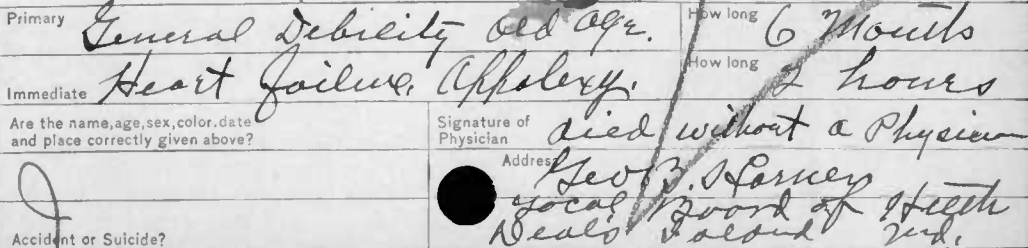 Primary General Debility Old Age. How long 6 Months
Immediate Heart Failure. Appolexy. How long 2 hours
Are the name,age,sex,color.date and place correctly given above?
Signature of Physician died without a Physician
Address Geo B.
Local Board of Heath
Deal's Island Md.
Accident or Suicide?